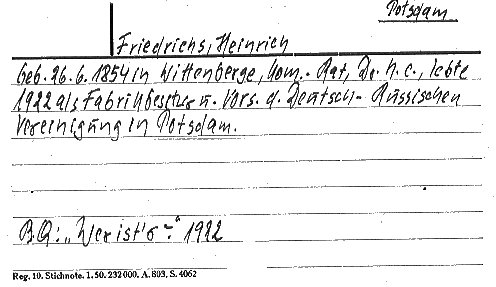 Potsdam
Friedrichs, Heinrich
geb. 26. 6. 1854 in Wittenberge, Kom.-Rat, Dr. h. c., lebte
1922 als Fabrikbesitzer u. Vors. d. Deutsch-Russischen
Vereinigung in Potsdam.
B.Q.: „Wer ist's?" 1922
Reg. 10. Stichnote. 1. 50. 232000. A. 803. S. 4062